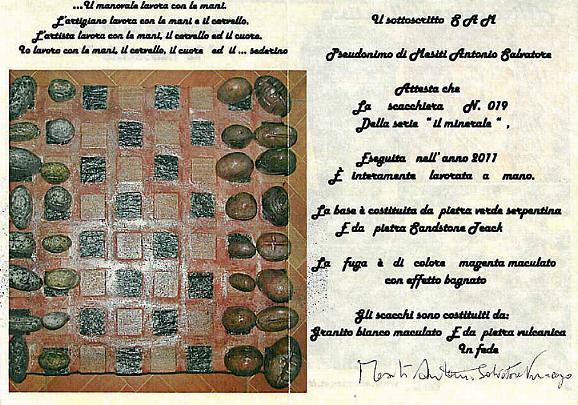 ...Il manovale lavora con le mani.
L'artigiano lavora con le mani e il cervello.
L'artista lavora con le mani, il cervello ed il cuore.
Io lavoro con le mani, il cervello, il cuore ed il ... sederino
Il sottoscritto S A M
Pseudonimo di Mesiti Antonio Salvatore
Attesta che
La scacchiera N. 019
Della serie " il minerale " ,
Eseguita nell'anno 2011
È interamente lavorata a mano.
La base è costituita da pietra verde serpentina
E da pietra Sandstone Teack
La fuga è di colore magenta maculato
con effetto bagnato
Gli scacchi sono costituiti da:
Granito bianco maculato E da pietra vulcanica
In fede
Mesiti Antonio Salvatore